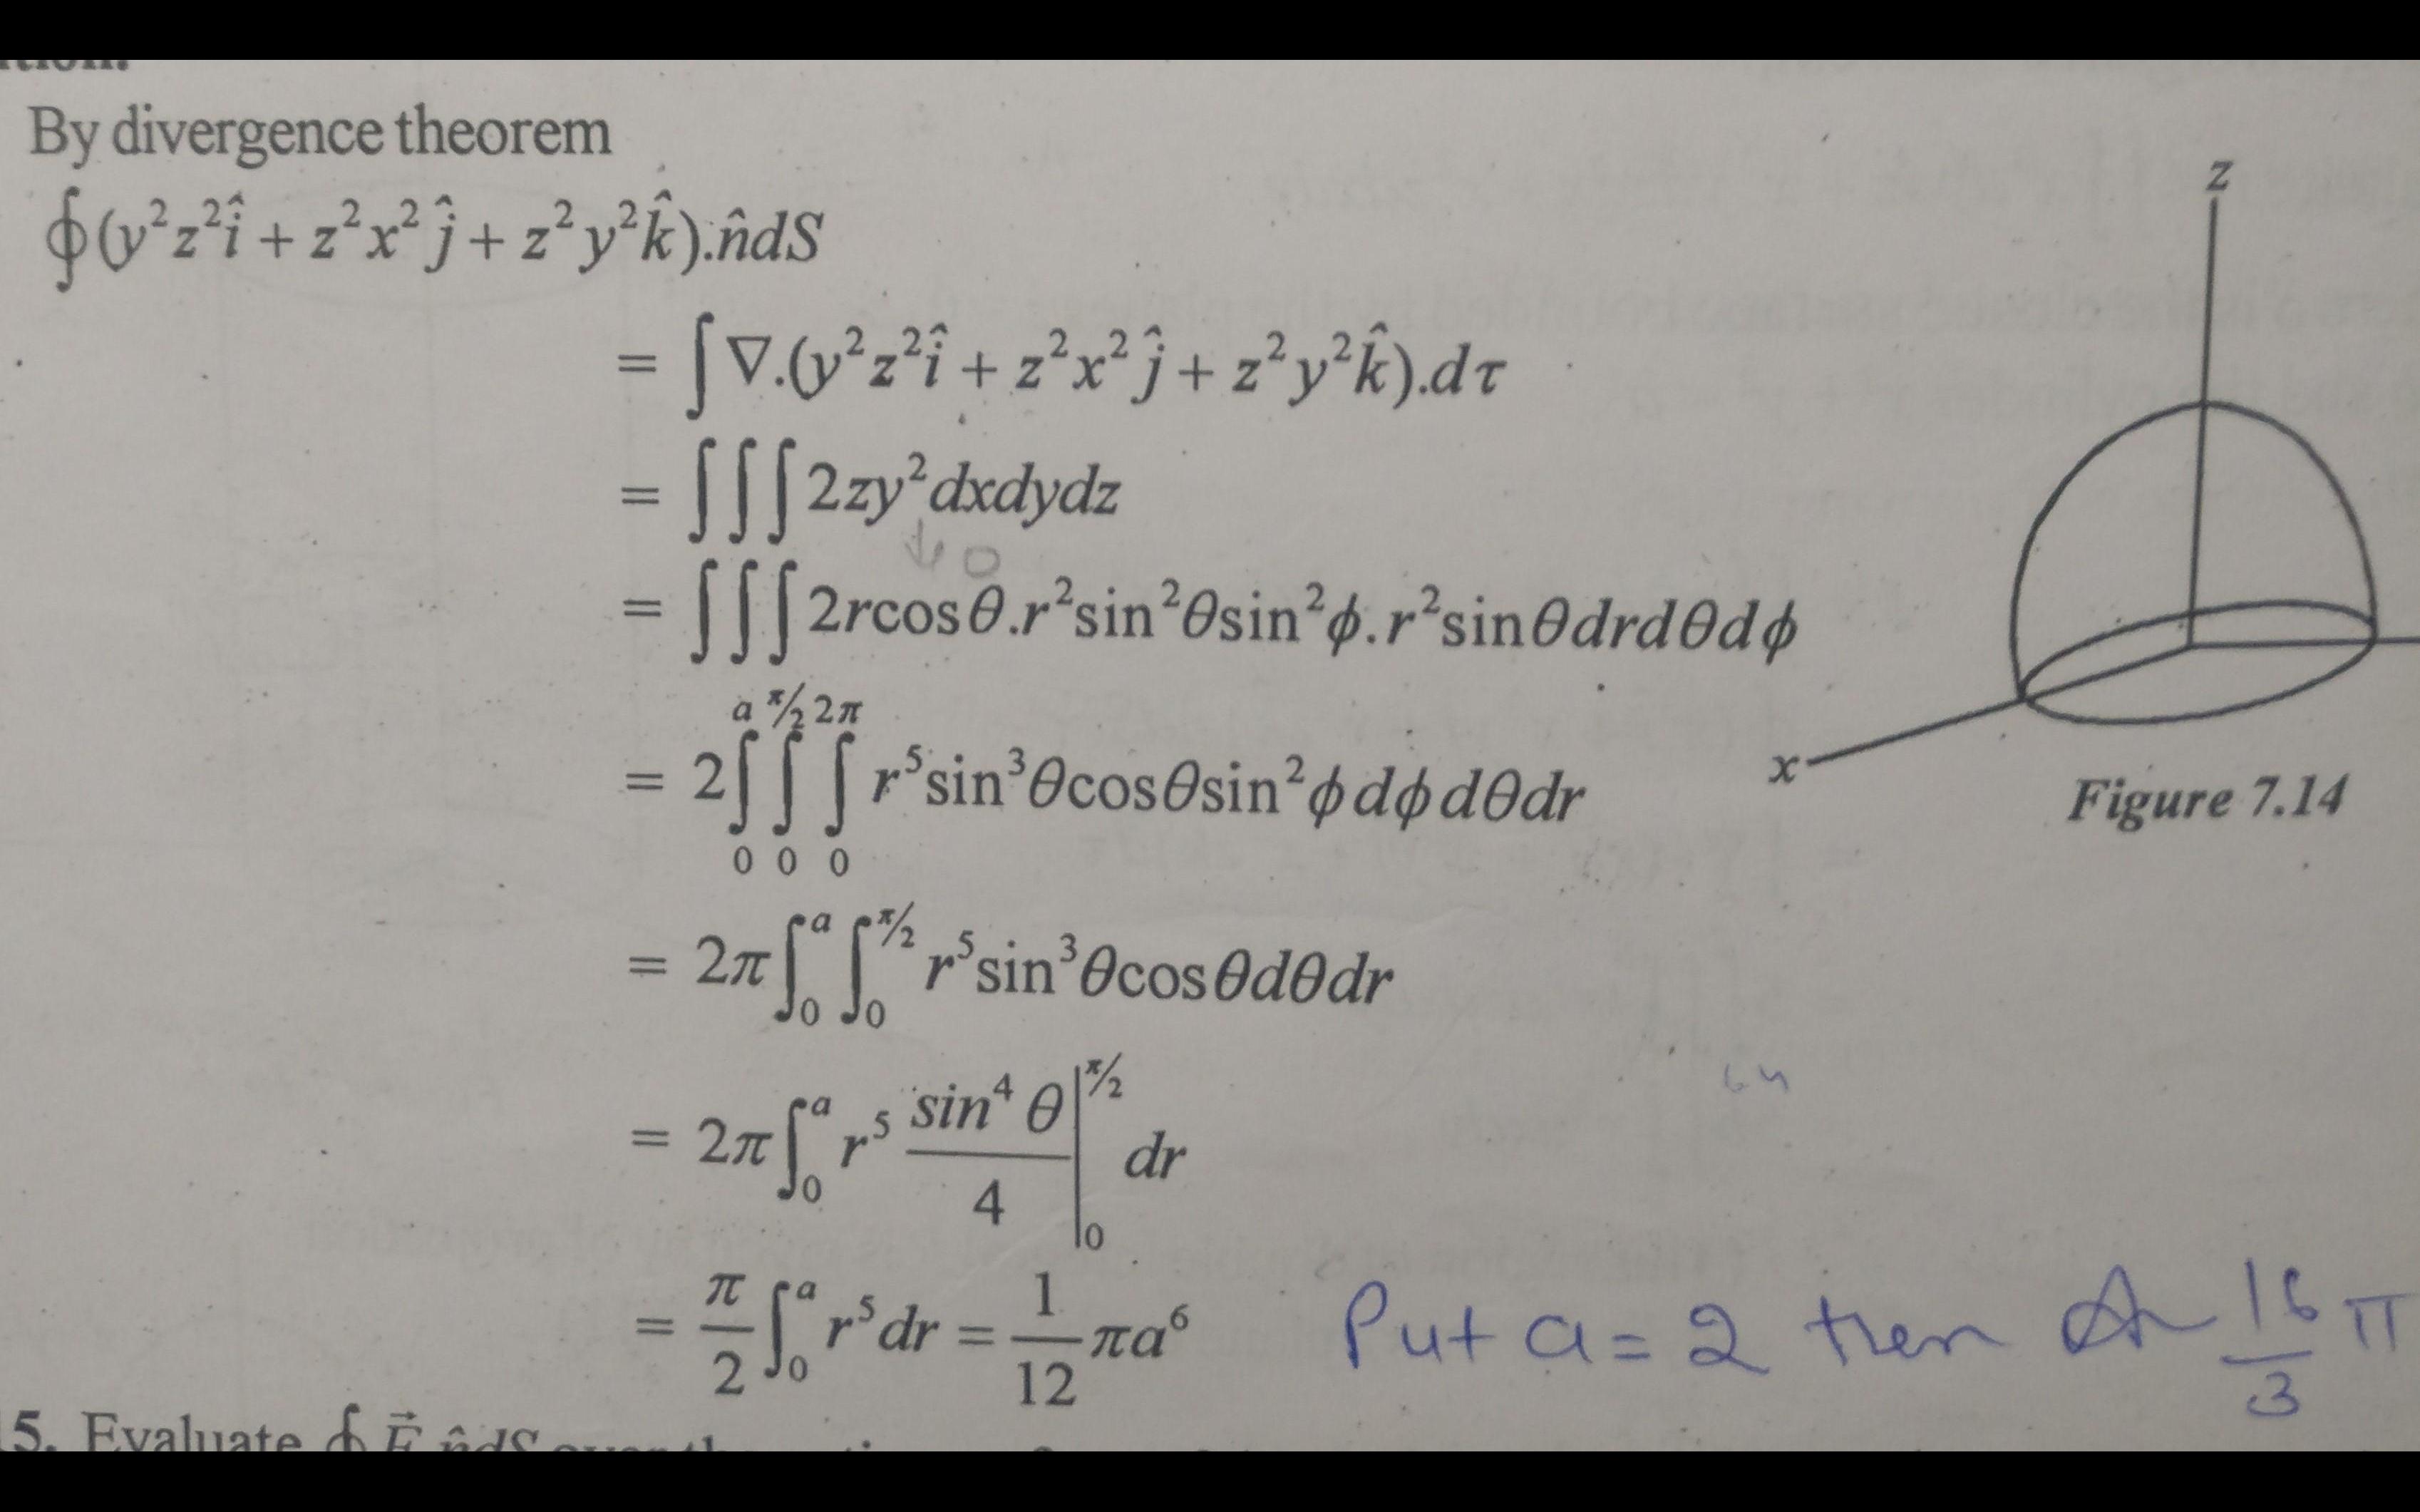 By divergence theorem
∮(y²z²î + z²x²ĵ + z²y²k̂).n̂dS
= ∫∇.(y²z²î + z²x²ĵ + z²y²k̂).dτ
= ∫∫∫2zy²dxdydz
↓ 0
= ∫∫∫2rcosθ.r²sin²θsin²ϕ.r²sinθdrdθdϕ
= 2∫₀ᵃ∫₀^{π/2}∫₀^{2π} r⁵sin³θcosθsin²ϕdϕdθdr
= 2π∫₀ᵃ∫₀^{π/2} r⁵sin³θcosθdθdr
= 2π∫₀ᵃ r⁵ sin⁴θ/4 |₀^{π/2} dr
= π/2 ∫₀ᵃ r⁵dr = 1/12 πa⁶
Put a = 2 then 16/3 π
z
x
Figure 7.14
64
5. Evaluate ∮ F⃗ n̂dS over the